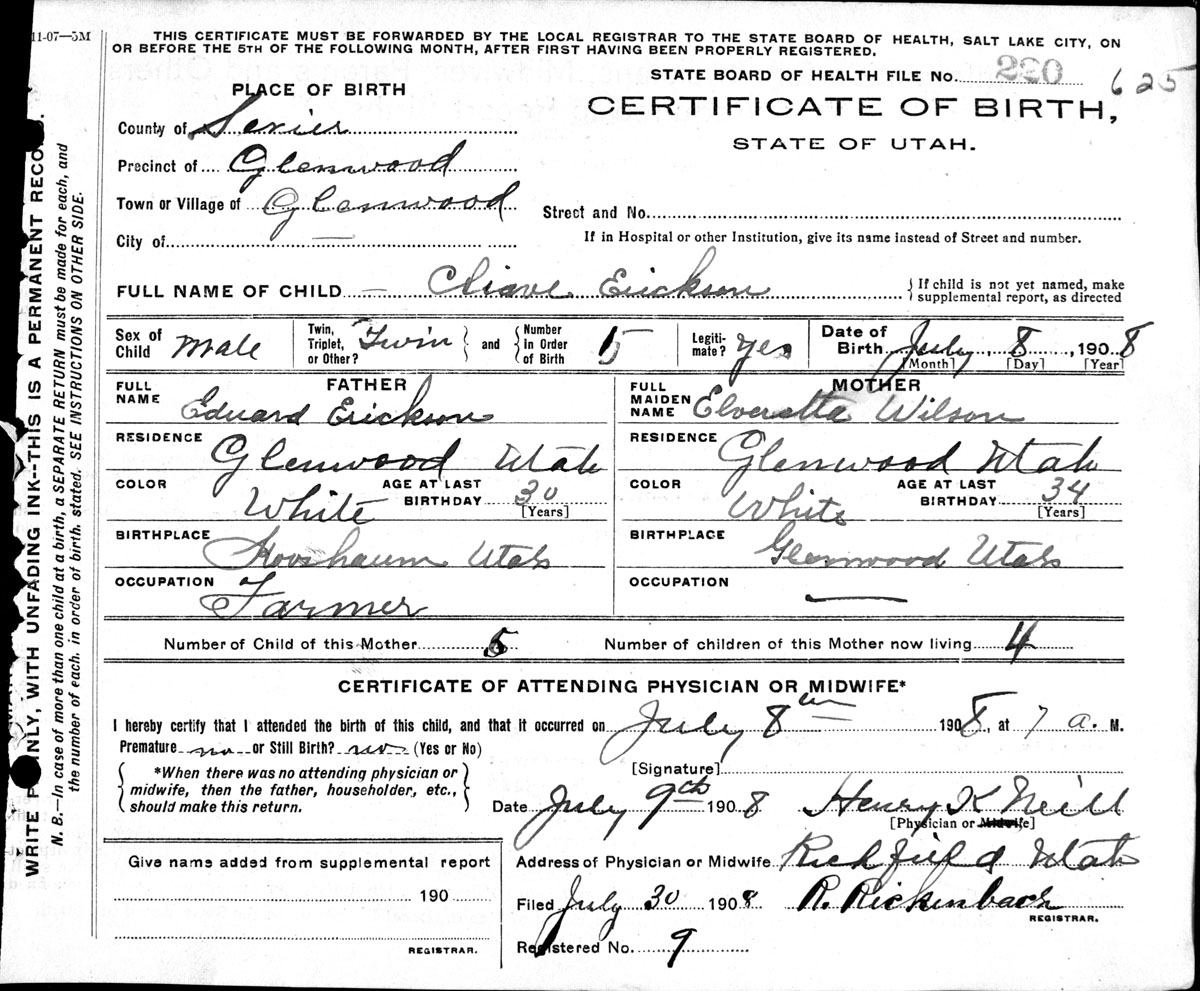 11-07—5M
THIS CERTIFICATE MUST BE FORWARDED BY THE LOCAL REGISTRAR TO THE STATE BOARD OF HEALTH, SALT LAKE CITY, ON
OR BEFORE THE 5TH OF THE FOLLOWING MONTH, AFTER FIRST HAVING BEEN PROPERLY REGISTERED.
STATE BOARD OF HEALTH FILE No. 220 625
PLACE OF BIRTH
CERTIFICATE OF BIRTH,
STATE OF UTAH.
County of Sevier
Precinct of Glenwood
Town or Village of Glenwood
Street and No.
City of —
If in Hospital or other Institution, give its name instead of Street and number.
FULL NAME OF CHILD — Erickson
If child is not yet named, make
supplemental report, as directed
Sex of Child Male
Twin, Triplet, or Other? Twin and Number in Order of Birth
Legiti-mate? Yes
Date of Birth July, 8, 1908
[Month] [Day] [Year]
FATHER
FULL NAME Eduard Erickson
RESIDENCE Glenwood Utah
COLOR White AGE AT LAST BIRTHDAY 30 [Years]
BIRTHPLACE Utah
OCCUPATION Farmer
MOTHER
FULL MAIDEN NAME Elveretta Wilson
RESIDENCE Glenwood Utah
COLOR White AGE AT LAST BIRTHDAY 34 [Years]
BIRTHPLACE Glenwood Utah
OCCUPATION —
Number of Child of this Mother 5 Number of children of this Mother now living 4
CERTIFICATE OF ATTENDING PHYSICIAN OR MIDWIFE*
I hereby certify that I attended the birth of this child, and that it occurred on July 8th 1908, at 7 a. M.
Premature no or Still Birth? no (Yes or No)
*When there was no attending physician or
midwife, then the father, householder, etc.,
should make this return.
[Signature]
Date July 9th 1908 Henry K Neill
[Physician or Midwife]
Address of Physician or Midwife Richfield Utah
Filed July 30 1908 R. Rickenbach
REGISTRAR.
Registered No. 9
Give name added from supplemental report
190
REGISTRAR.
WRITE PLAINLY, WITH UNFADING INK--THIS IS A PERMANENT RECORD.
N. B.—In case of more than one child at a birth, a SEPARATE RETURN must be made for each, and
the number of each, in order of birth, stated. SEE INSTRUCTIONS ON OTHER SIDE.